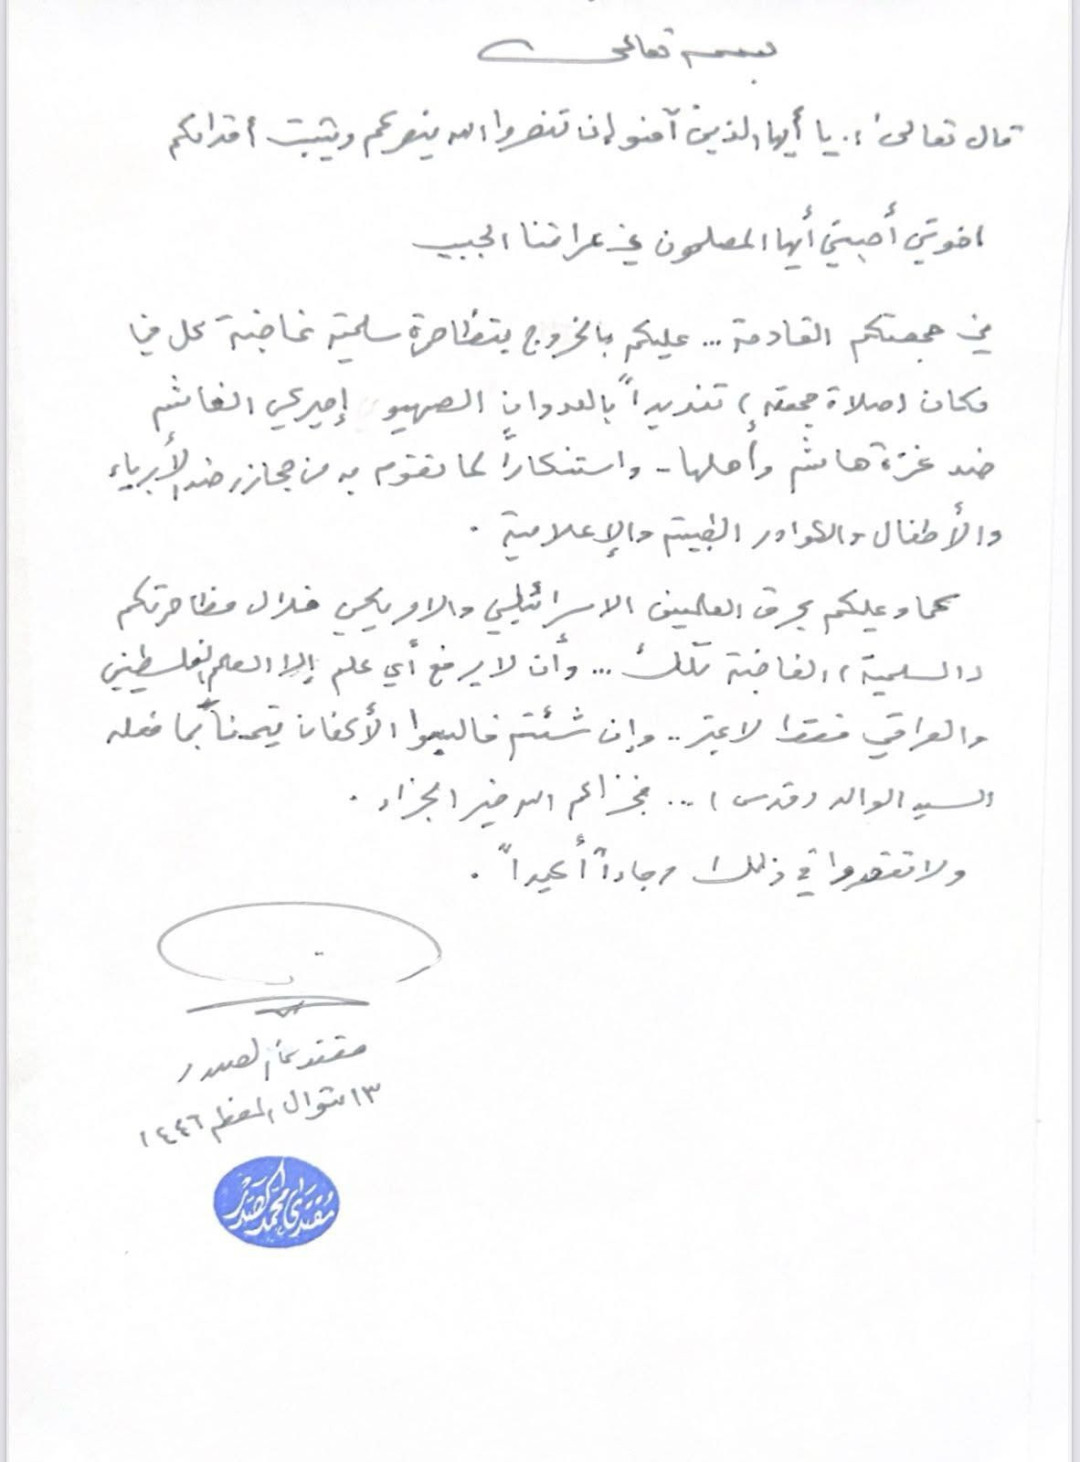 بسمه تعالى
قال تعالى: يا أيها الذين آمنوا إن تنصروا الله ينصركم ويثبت أقدامكم
اخوتي أحبتي أيها المصلحون في عراقنا الحبيب
في جمعتكم القادمة ... عليكم بالخروج بتظاهرة سلمية غاضبة كل في
مكان (صلاة جمعته) تنديداً بالعدوان الصهيو إمريكي الغاشم
ضد غزة هاشم وأهلها - واستنكاراً لما تقوم به من مجازر ضد الأبرياء
والأطفال والكوادر الطبية والإعلامية .
كما وعليكم بحرق العلمين الاسرائيلي والامريكي خلال مظاهرتكم
(السلمية) الغاضبة تلك ... وأن لا يرفع أي علم إلا العلم الفلسطيني
والعراقي فقط لا غير .. وإن شئتم فالبسوا الأكفان تيمناً بما فعله
السيد الوالد (قدس) ... فجزاكم الله خير الجزاء .
ولا تقصروا في ذلك رجاءاً أكيداً .
مقتدى الصدر
١٣ شوال المعظم ١٤٤٦
مقتدى محمد الصدر